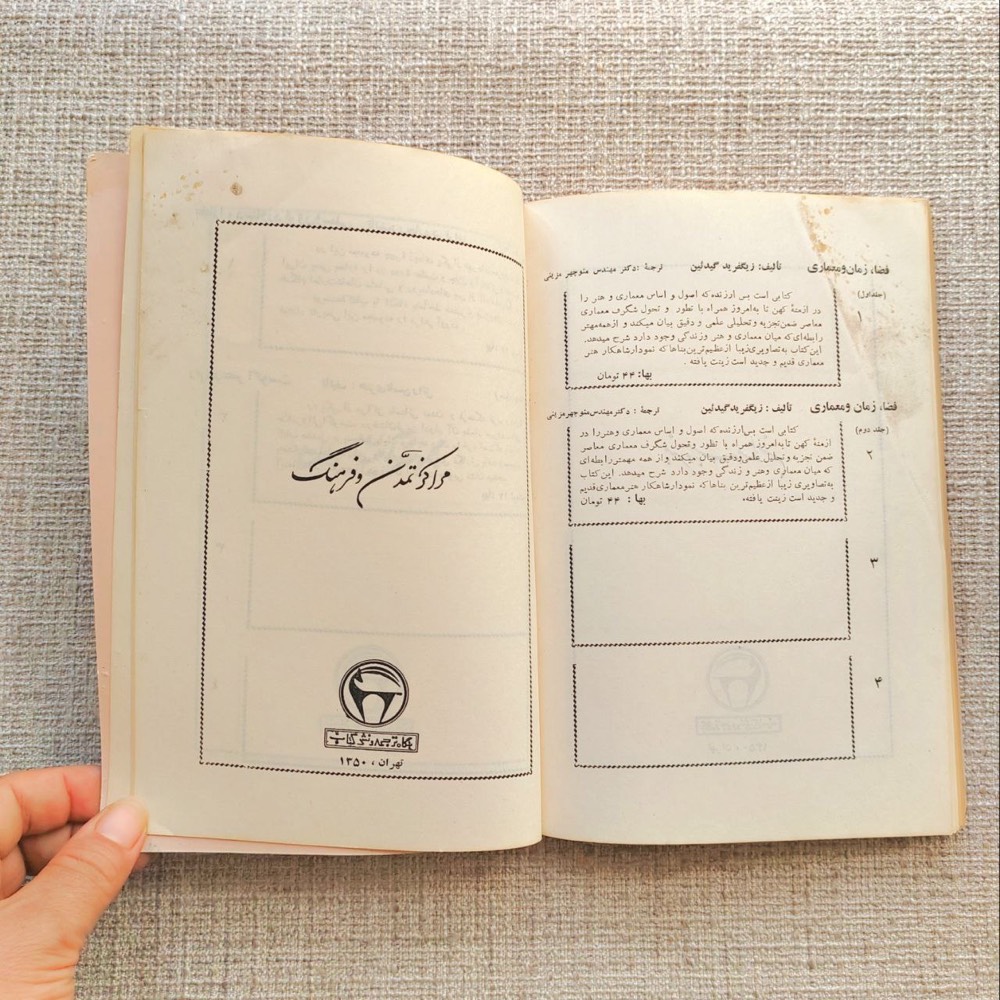 فضا، زمان و معماری تألیف: زیگفرید گیدئین ترجمهٔ: دکتر مهندس منوچهر مزینی
(جلد اول)
۱
کتابی است بس ارزنده که اصول و اساس معماری و هنر را
در ازمنهٔ کهن تا به‌امروز همراه با تطور و تحول شگرف معماری
معاصر ضمن تجزیه و تحلیلی علمی و دقیق بیان میکند و از همه مهمتر
رابطه‌ای که میان معماری و هنر وزندگی وجود دارد شرح میدهد.
این کتاب به‌تصاویری زیبا ازعظیم‌ترین بناها که نمودار شاهکار هنر
معماری قدیم و جدید است زینت یافته.
بها: ۴۴ تومان
فضا، زمان و معماری تألیف: زیگفرید گیدئین ترجمهٔ: دکتر مهندس منوچهر مزینی
(جلد دوم)
۲
کتابی است بس ارزنده که اصول و اساس معماری وهنر را در
ازمنهٔ کهن تا به‌امروز همراه با تطور وتحول شگرف معماری معاصر
ضمن تجزیه و تحلیل علمی ودقیق بیان میکند و از همه مهمتر رابطه‌ای
که میان معماری وهنر و زندگی وجود دارد شرح میدهد. این کتاب
به‌تصاویری زیبا ازعظیم‌ترین بناها که نمودار شاهکار هنر معماری قدیم
و جدید است زینت یافته. بها: ۴۴ تومان
۳
۴
مراکز تمدن و فرهنگ
بنگاه ترجمه و نشر کتاب
تهران، ۱۳۵۰